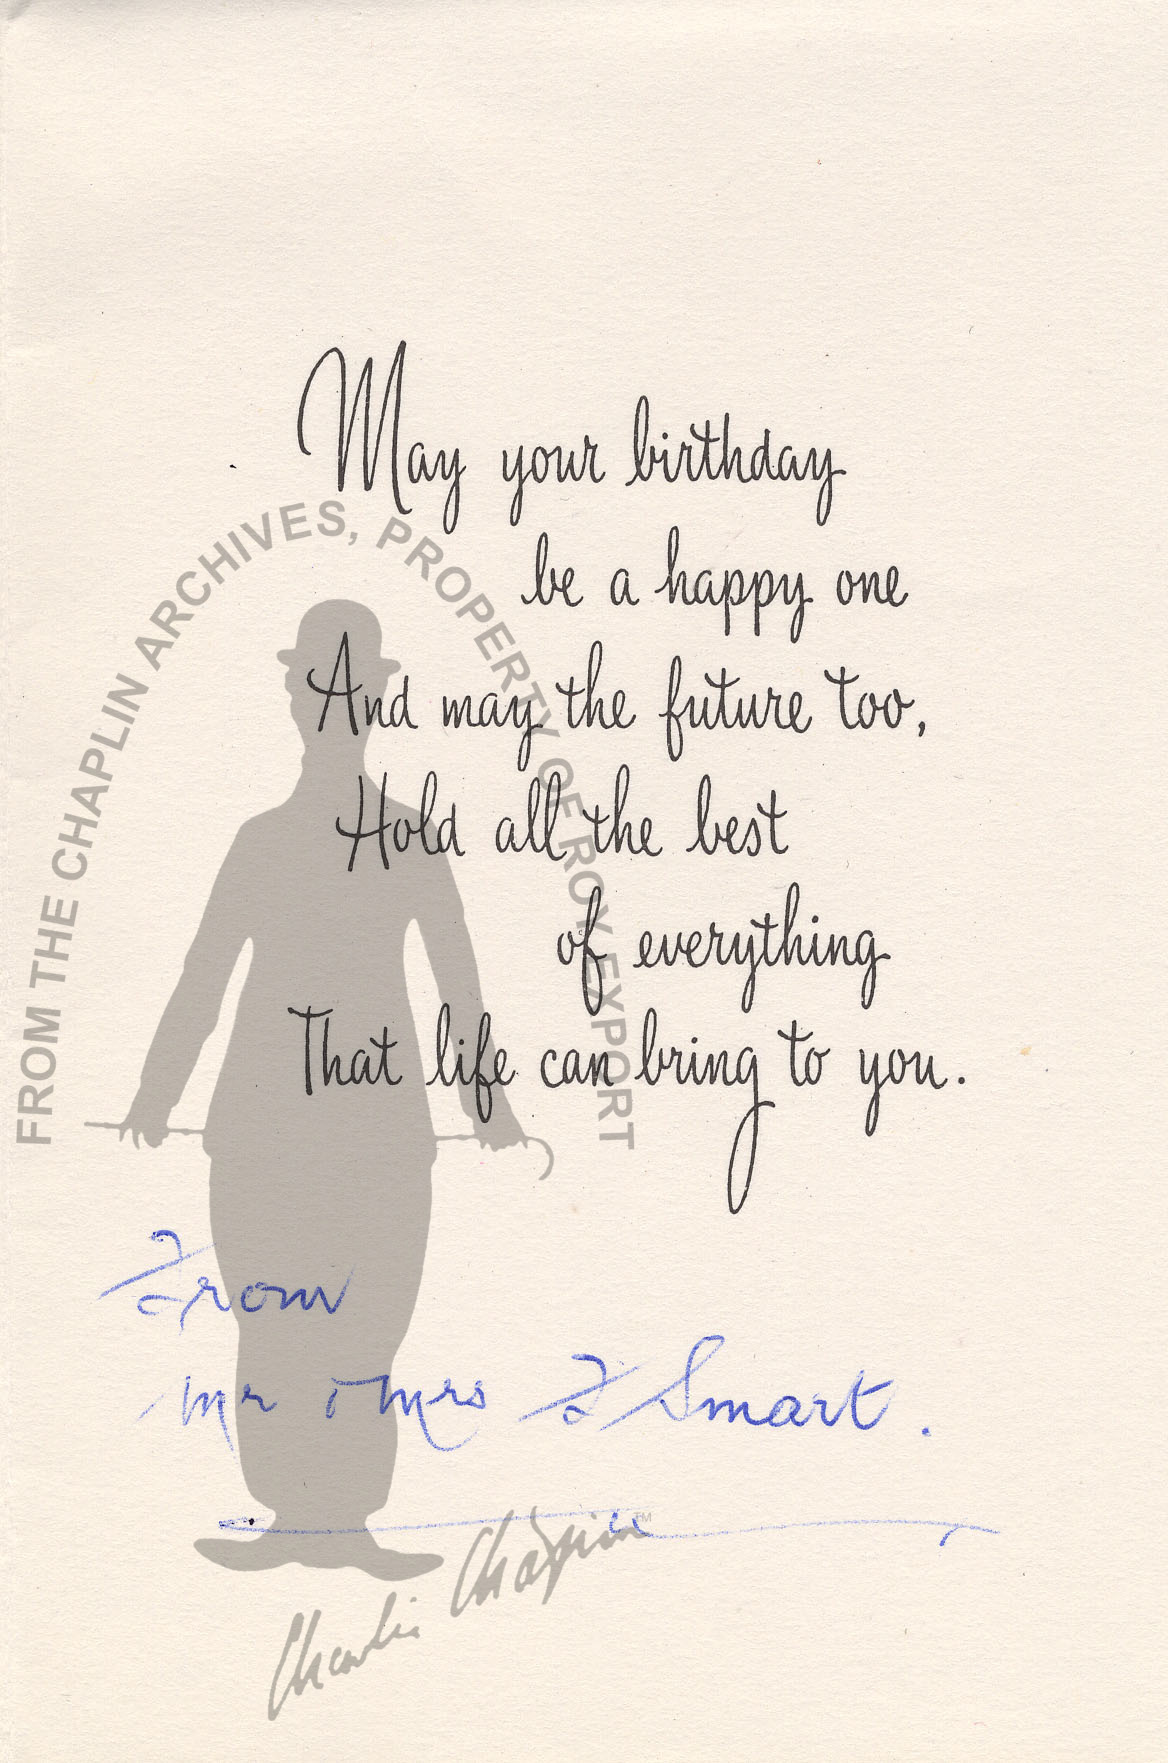 May your birthday
be a happy one
And may the future too,
Hold all the best
of everything
That life can bring to you.
From
Mr & Mrs F Smart.
FROM THE CHAPLIN ARCHIVES, PROPERTY OF ROY EXPORT
Charlie Chaplin™